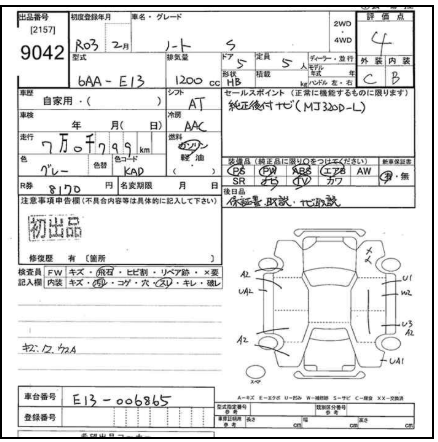 出品番号
[2157]
9042
初度登録年月
R03 2月
車名・グレード
ノート S
2WD
・
4WD
評価点
4
型式
6AA-E13
排気量
1200 cc
ドア
5
定員
5 人
ディーラー・並行
モデル年式 年
外装 内装
C B
形状
HB
積載
kg
ハンドル 左・右
車歴
自家用・( )
シフト
AT
セールスポイント (正常に機能するものに限ります)
純正後付ナビ(MJ320D-L)
車検
年 月( 日)
冷房
AAC
走行
7万0千799 km
燃料
ガソリン
軽油
色
グレー
色替
色コード
KAD
装備品 (純正品に限り○をつけてください)
新車保証書
PS PW ABS エアB AW
SR ナビ TV カワ
有・無
R券 8170 円
名変期限 月 日
後日品
保証書 取説・ナビ取説
注意事項申告欄(不具合内容等は具体的に記入して下さい)
初出品
修復歴 有 [箇所 ]
検査員記入欄
FW キズ・飛石・ヒビ割・リペア跡・×要
内装 キズ・汚・コゲ・穴・スレ・キレ・破レ
A2
UA2
A2
U1
W2
U3
A2
A2
UA1
スペア
A-キズ E-エクボ U-凹み W-補修跡 S-サビ C-腐食 XX-交換済
車台番号 E13-006865
登録番号
型式指定番号
参考
類別区分番号
参考
長さ cm
幅 cm
高さ cm